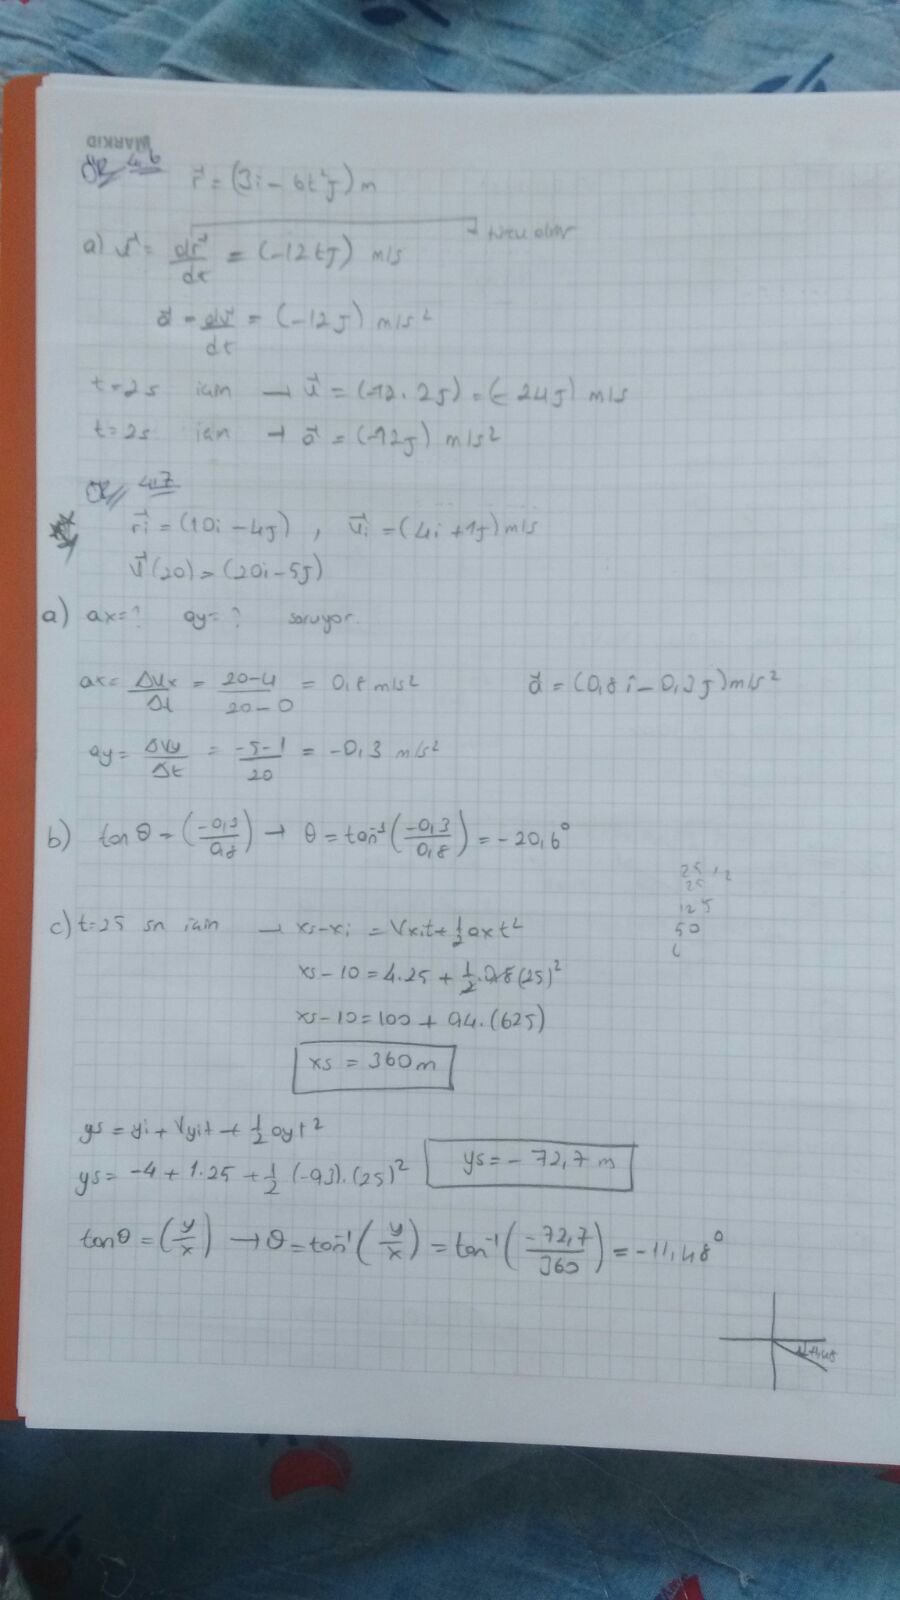 MARKID
ÖR 4.6 r⃗ = (3i - 6t²j) m
a) v⃗ = dr⃗/dt = (-12tj) m/s
a⃗ = dv⃗/dt = (-12j) m/s²
t=2s için → v⃗ = (-12.2j) = (-24j) m/s
t=2s için → a⃗ = (-12j) m/s²
ÖR 4.7
r⃗i = (10i - 4j) , v⃗i = (4i + 1j) m/s
v⃗(20) = (20i - 5j)
a) ax = ? ay = ? soruyor.
ax = ΔVx/Δt = 20-4/20-0 = 0,8 m/s² a⃗ = (0,8i - 0,3j) m/s²
ay = ΔVy/Δt = -5-1/20 = -0,3 m/s²
b) tanθ = (-0,3/0,8) → θ = tan⁻¹(-0,3/0,8) = -20,6°
25
25
125
50
c) t=25 sn için → xs-xi = Vxit + 1/2 axt²
xs - 10 = 4.25 + 1/2.0,8(25)²
xs - 10 = 100 + 0,4.(625)
xs = 360 m
ys = yi + Vyit + 1/2 ayt²
ys = -4 + 1.25 + 1/2 (-0,3).(25)² ys = -72,7 m
tanθ = (y/x) → θ = tan⁻¹(y/x) = tan⁻¹(-72,7/360) = -11,48°